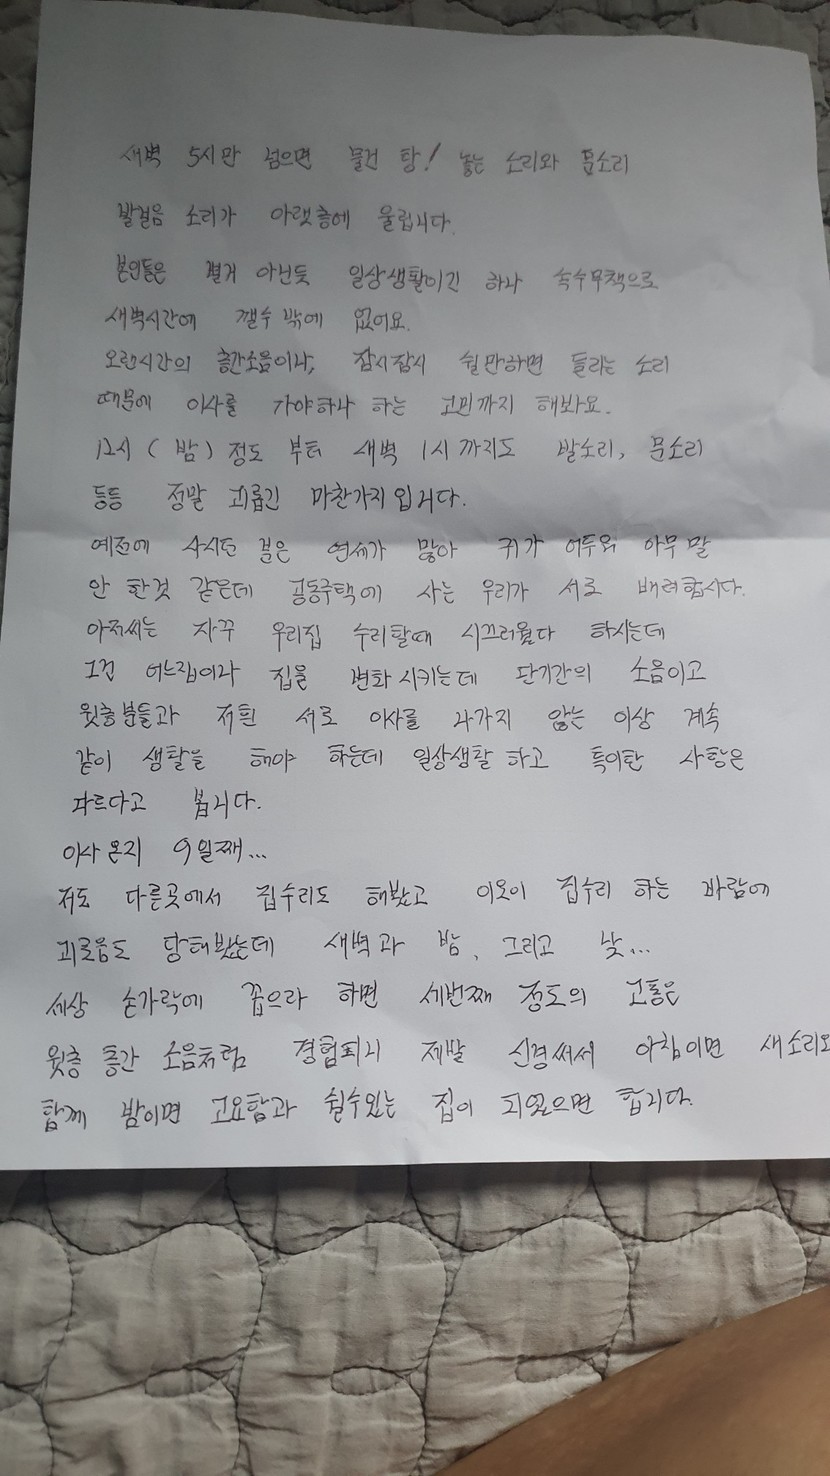 새벽 5시만 넘으면 물건 탕! 놓는 소리와 문소리
발걸음 소리가 아랫층에 울립니다.
본인들은 별거 아닌듯 일상생활이긴 하나 속수무책으로
새벽시간에 깰수 밖에 없어요.
오랜시간의 층간소음이나, 잠시잠시 쉴만하면 들리는 소리
때문에 이사를 가야하나 하는 고민까지 해봐요.
12시 (밤) 정도 부터 새벽 1시 까지도 발소리, 문소리
등등 정말 괴롭긴 마찬가지입니다.
예전에 사시던 분은 연세가 많아 귀가 어두워 아무말
안 한것 같은데 공동주택에 사는 우리가 서로 배려합시다.
아저씨는 자꾸 우리집 수리할때 시끄러웠다 하시는데
그건 어느집이라 집을 변화시키는데 단기간의 소음이고
윗층분들과 저흰 서로 이사를 나가지 않는 이상 계속
같이 생활을 해야 하는데 일상생활 하고 특이한 사항은
다르다고 봅니다.
이사온지 9일째...
저도 다른곳에서 집수리도 해봤고 이웃이 집수리 하는 바람에
괴로움도 당해봤는데 새벽과 밤, 그리고 낮...
세상 손가락에 꼽으라 하면 세번째 정도의 고통은
윗층 층간 소음처럼 경험되니 제발 신경써서 아침이면 새소리와
함께 밤이면 고요함과 쉴수있는 집이 되었으면 합니다.